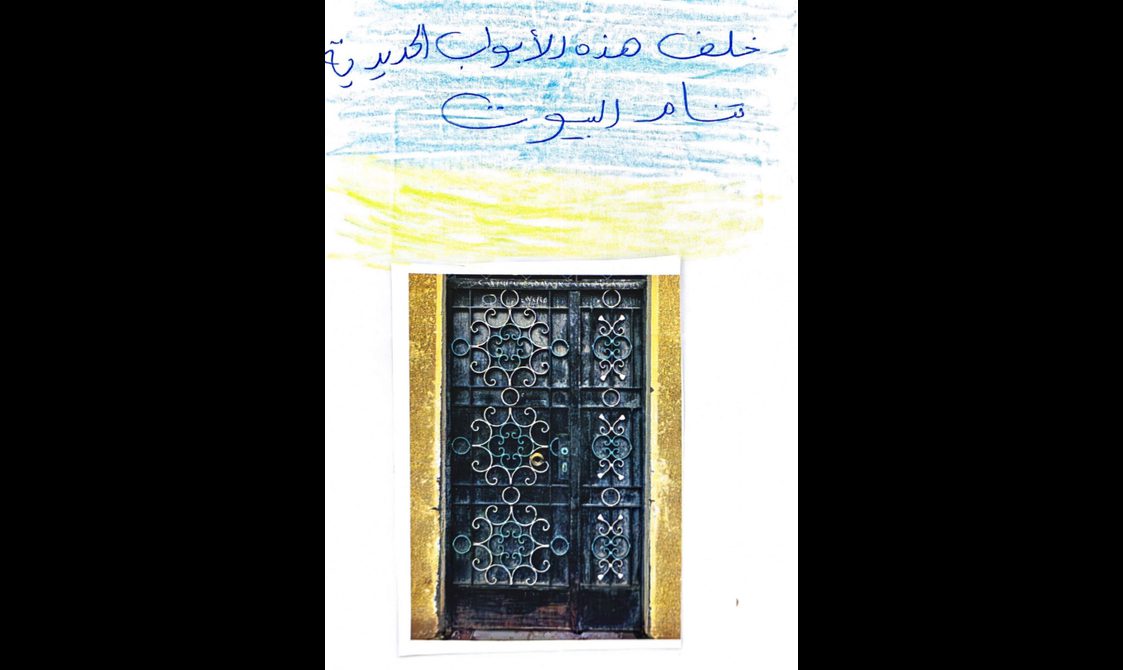 خلف هذه الأبواب الحديدية
تنام البيوت